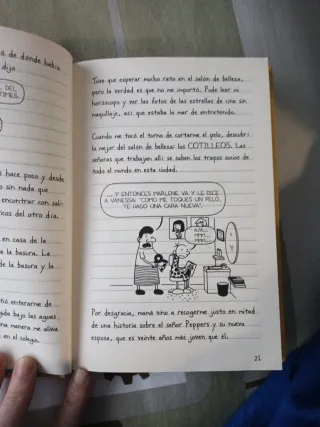 tó de dónde había
dijo
DEL
TIMES.
hace poco y desde
o sin nada que
encontrar con sali-
ricos del otro día.
en casa de la
la basura. La
de la basura y la
tió enterarme de
gida bajo las aguas
na manera me alivia
en el colegio.
Tuve que esperar mucho rato en el salón de belleza,
pero la verdad es que no me importó. Pude leer mi
horóscopo y ver las fotos de las estrellas de cine sin
maquillaje, así que estaba la mar de entretenido.
Cuando me tocó el turno de cortarme el pelo, descubrí
lo mejor del salón de belleza: los COTILLEOS. Las
señoras que trabajan allí se saben los trapos sucios de
todo el mundo en esta ciudad.
...Y ENTONCES MARLENE VA Y LE DICE
A VANESSA: "COMO ME TOQUES UN PELO,
TE HAGO UNA CARA NUEVA".
Por desgracia, mamá vino a recogerme justo en mitad
de una historia sobre el señor Peppers y su nueva
esposa, que es veinte años más joven que él.
21